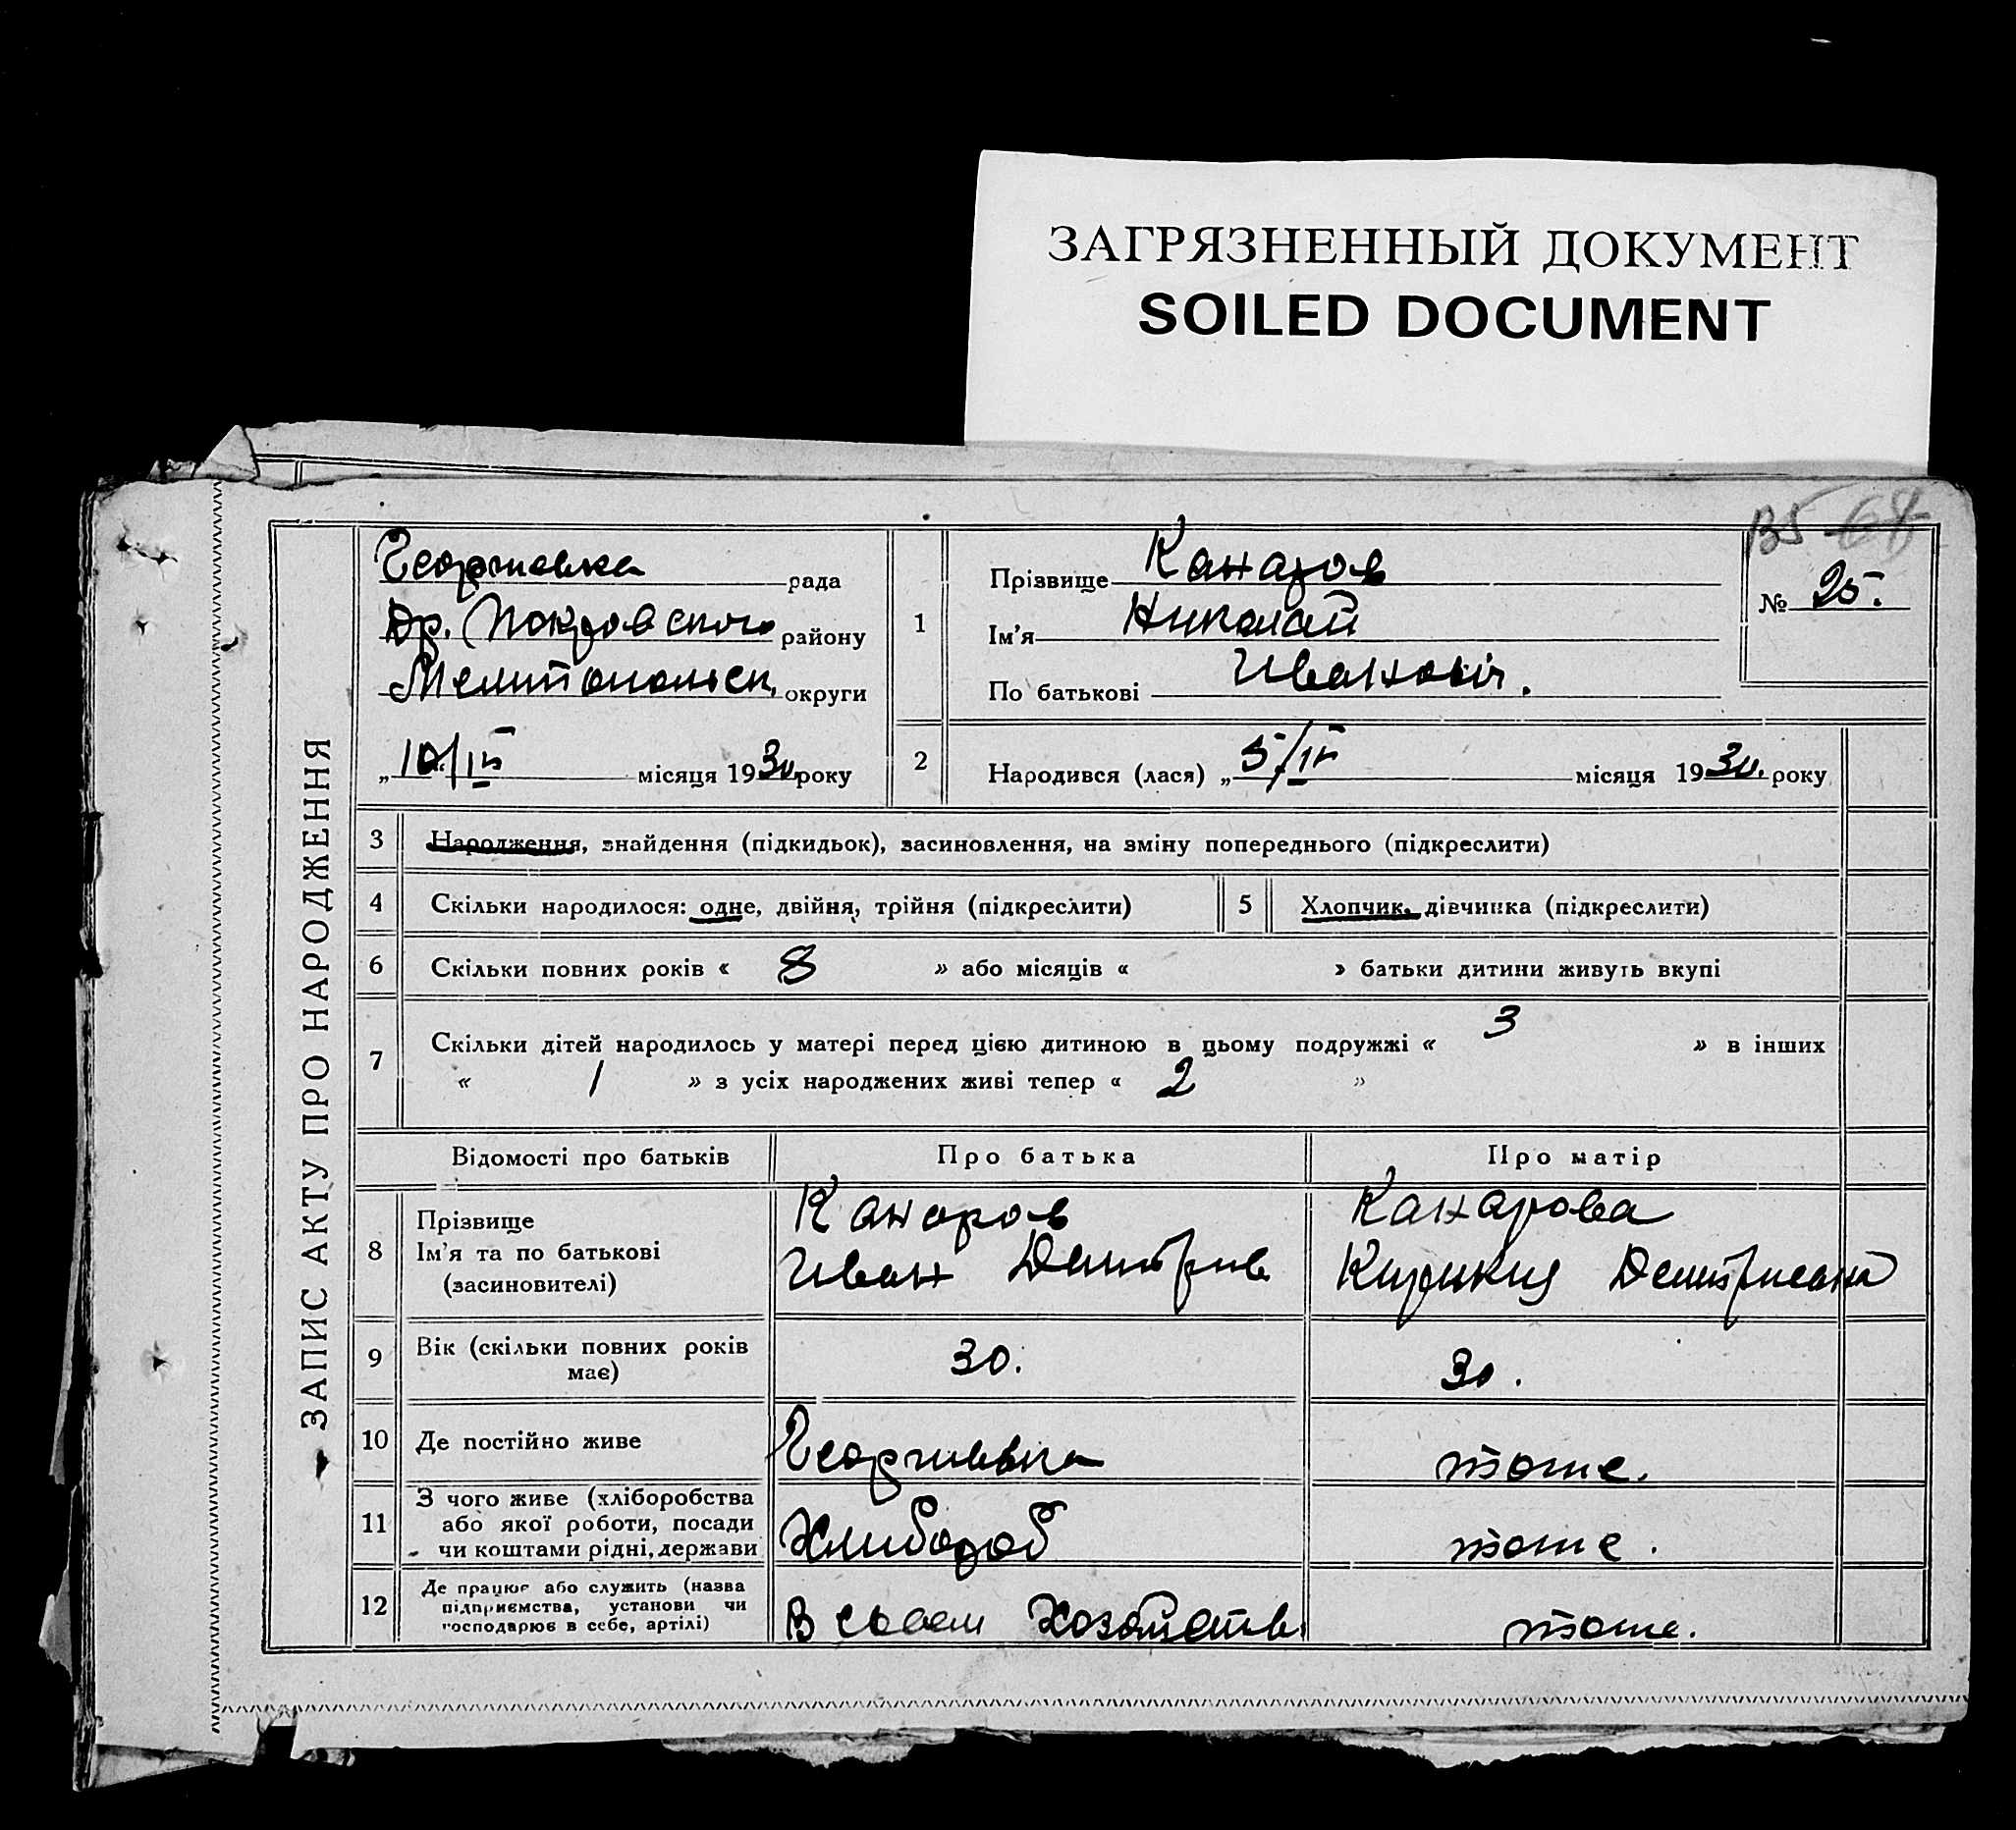 ЗАГРЯЗНЕННЫЙ ДОКУМЕНТ
SOILED DOCUMENT
ЗАПИС АКТУ ПРО НАРОДЖЕННЯ
Георгиевка рада
Др. Покровского району
Мелитопольск. округи
„10/IV місяця 1930 року
1
Прізвище Канаров
Ім'я Николай
По батькові Иванович.
В5 68
№ 25.
2 Народився (лася) „5/IV місяця 1930. року
3 Народження, знайдення (підкидьок), засиновлення, на зміну попереднього (підкреслити)
4 Скільки народилося: одне, двійня, трійня (підкреслити) 5 Хлопчик, дівчинка (підкреслити)
6 Скільки повних років « 8 » або місяців « » батьки дитини живуть вкупі
7 Скільки дітей народилось у матері перед цією дитиною в цьому подружжі « 3 » в інших
« 1 » з усіх народжених живі тепер « 2 »
Відомості про батьків Про батька Про матір
8 Прізвище Канаров Канарова
Ім'я та по батькові Иван Дмитрив Дмитриевна
(засиновителі)
9 Вік (скільки повних років має) 30. 30.
10 Де постійно живе Георгиевка тоже.
11 З чого живе (хліборобства
або якої роботи, посади
чи коштами рідні, держави Хлибороб тоже.
12 Де працює або служить (назва
підприємства, установи чи
господарює в себе, артілі) В своем Хозяйств. тоже.